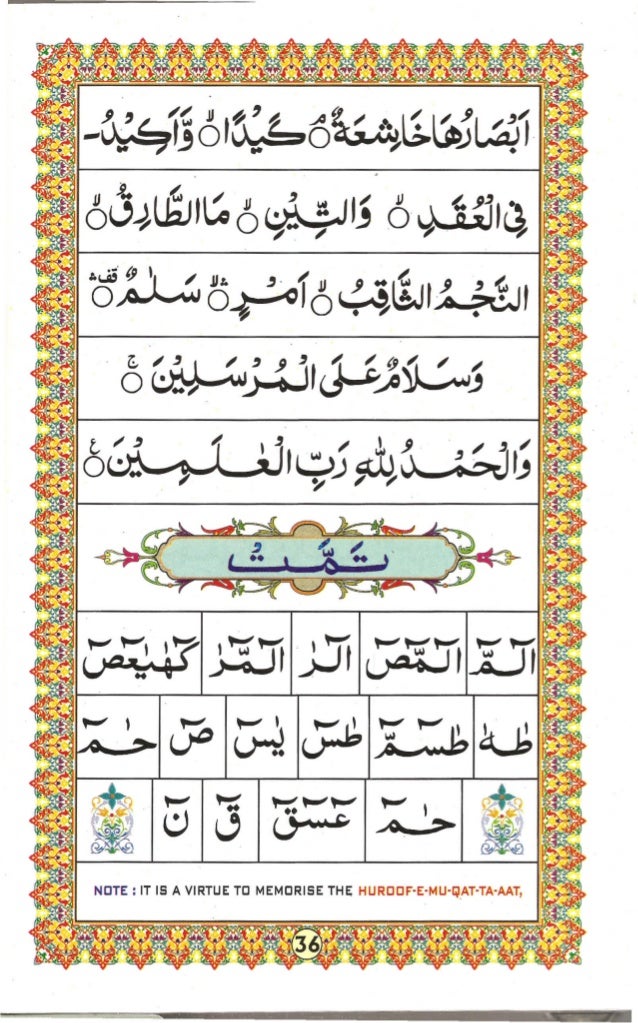 اَبْصَارُهَا خَاشِعَةٌ ۘ كَيْدًا ۙ وَّاَكِيْدُ-
فِی الْعُقَدِ ۙ وَالتِّيْنِ ۙ مَا الطَّارِقُ ۙ
النَّجْمُ الثَّاقِبُ ۙ اَمْرٍ ۙ سَلٰمٌ
وَسَلَامٌ عَلَى الْمُرْسَلِيْنَ ۚ
وَالْحَمْدُ لِلّٰهِ رَبِّ الْعٰلَمِيْنَ
تَمَّتْ
الٓمّٓ الٓمّٓصٓ الٓرٰ الٓمّٓرٰ كٓهٰيٰعٓصٓ
طٰهٰ طٰسٓمّٓ طٰسٓ يٰسٓ صٓ حٰمٓ
حٰمٓ عٓسٓقٓ قٓ نٓ
NOTE : IT IS A VIRTUE TO MEMORISE THE HUROOF-E-MU-QAT-TA-AAT,
36